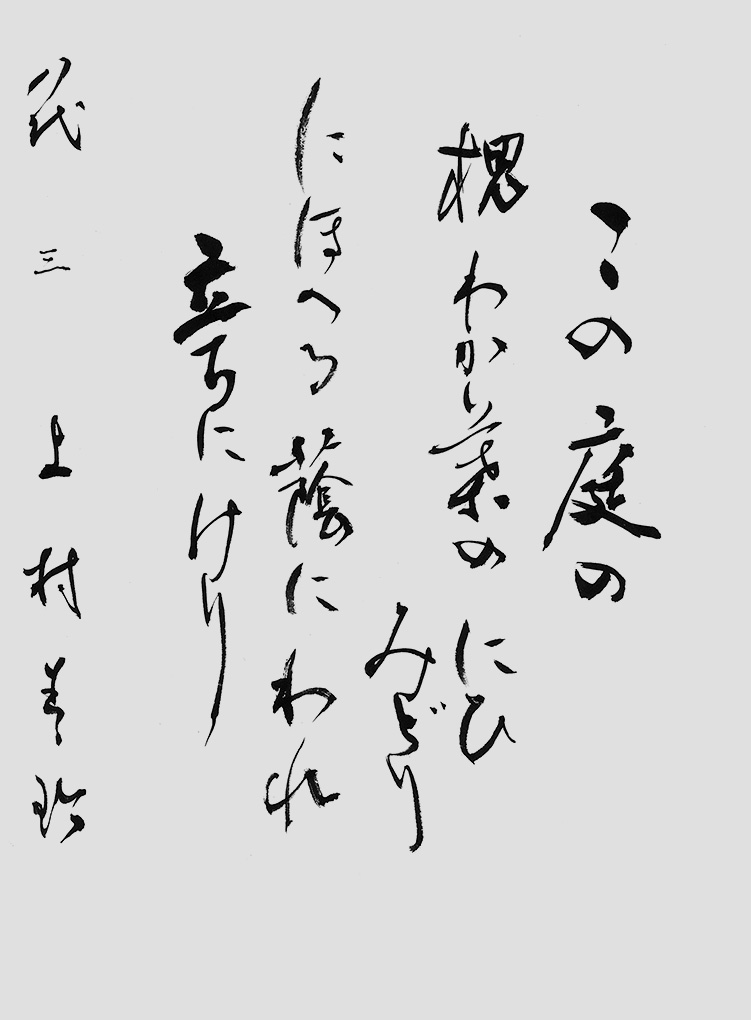 この庭の
槐わかい葉の にひ
みどり
にほへる蔭にわれ
立ちにけり
三 上村